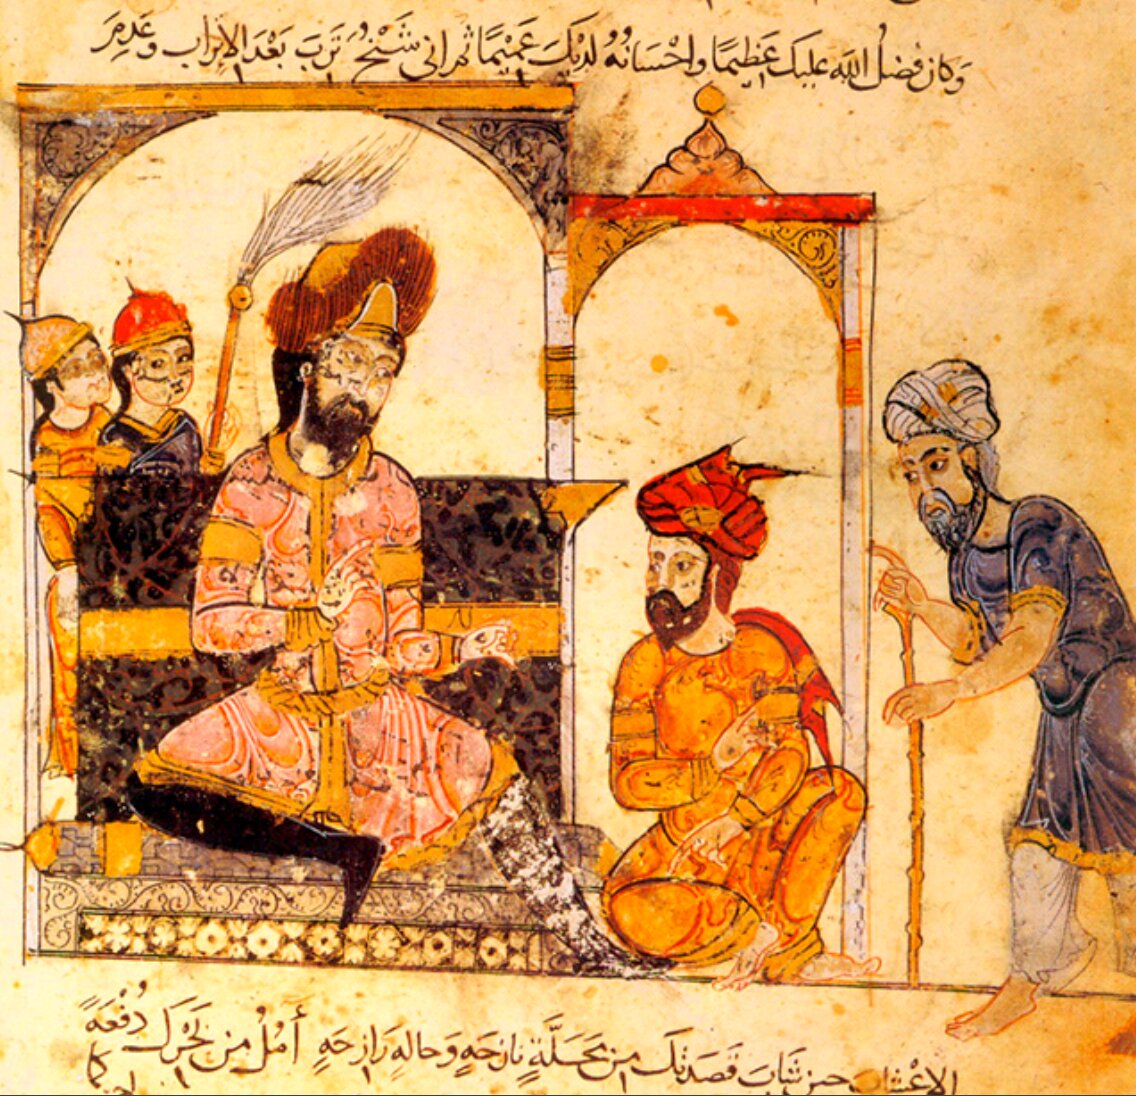 وكان فضل الله عليك عظيمًا واحْسَانُهُ لديْكَ عَمِيْمًا ثم انى شَيْخٌ تَرَبَ بَعْدَ الاِتراب وعَدِمَ
الاِعْشاب حين شَابَ قَصَدتك من مَحَلَّةٍ نازِحَةٍ وَحالةٍ رَازِحَةٍ أَمُلُ مِن بَحْرِكَ دُفْعَةً